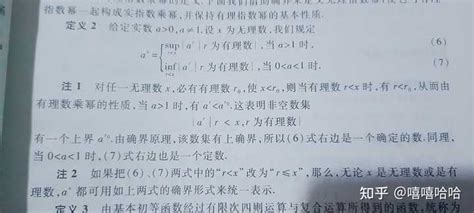 指数幂一起构成实指数乘幂,并保持有理指数幂的基本性质.
定义 2 给定实数 a>0,a≠1.设 x 为无理数,我们规定
a^x = { sup{a^r | r 为有理数}, 当 a>1 时, (6)
r<x
inf{a^r | r 为有理数}, 当 0<a<1 时. (7)
r<x
注 1 对任一无理数 x,必有有理数 r₀,使 x<r₀,则当有理数 r<x 时,有 r<r₀,从而由
有理数乘幂的性质,当 a>1 时,有 a^r<a^r₀.这表明非空数集
{a^r | r<x,r 为有理数}
有一个上界 a^r₀.由确界原理,该数集有上确界,所以(6)式右边是一个确定的数.同理,
当 0<a<1 时,(7)式右边也是一个定数.
注 2 如果把(6)、(7)两式中的“r<x”改为“r≤x”,那么,无论 x 是无理数或是有
理数,a^x 都可用如上两式的确界形式来统一表示.
定义 3 由基本初等函数经过有限次四则运算与复合运算所得到的函数,统
知乎 @嘻嘻哈哈